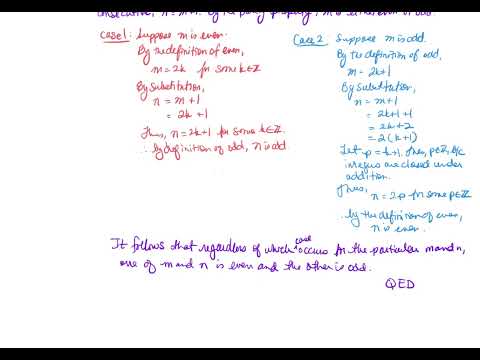 consecutive, n = m+1. By the parity property, m is either even or odd.
Case 1: Suppose m is even.
By the definition of even,
m = 2k for some k∈ℤ
By substitution,
n = m+1
= 2k+1
Thus, n = 2k+1 for some k∈ℤ.
∴ by definition of odd, n is odd
Case 2: Suppose m is odd.
By the definition of odd,
m = 2k+1
By substitution,
n = m+1
= 2k+1+1
= 2k+2
= 2(k+1)
Let p = k+1. Then, p∈ℤ b/c
integers are closed under
addition.
Thus,
n = 2p for some p∈ℤ
∴ by the definition of even,
n is even.
It follows that regardless of which case occurs for the particular m and n,
one of m and n is even and the other is odd.
QED